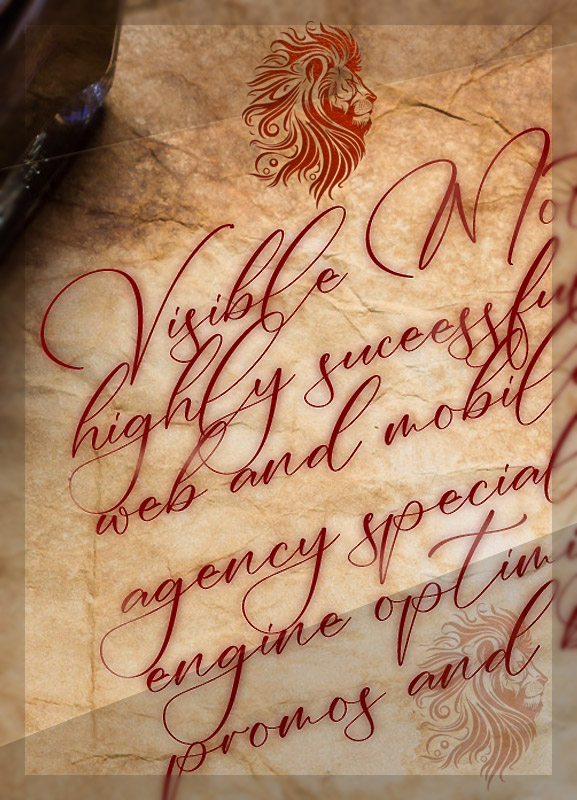 Visible Mo
highly successful
web and mobil
agency special
engine optimi
promos and